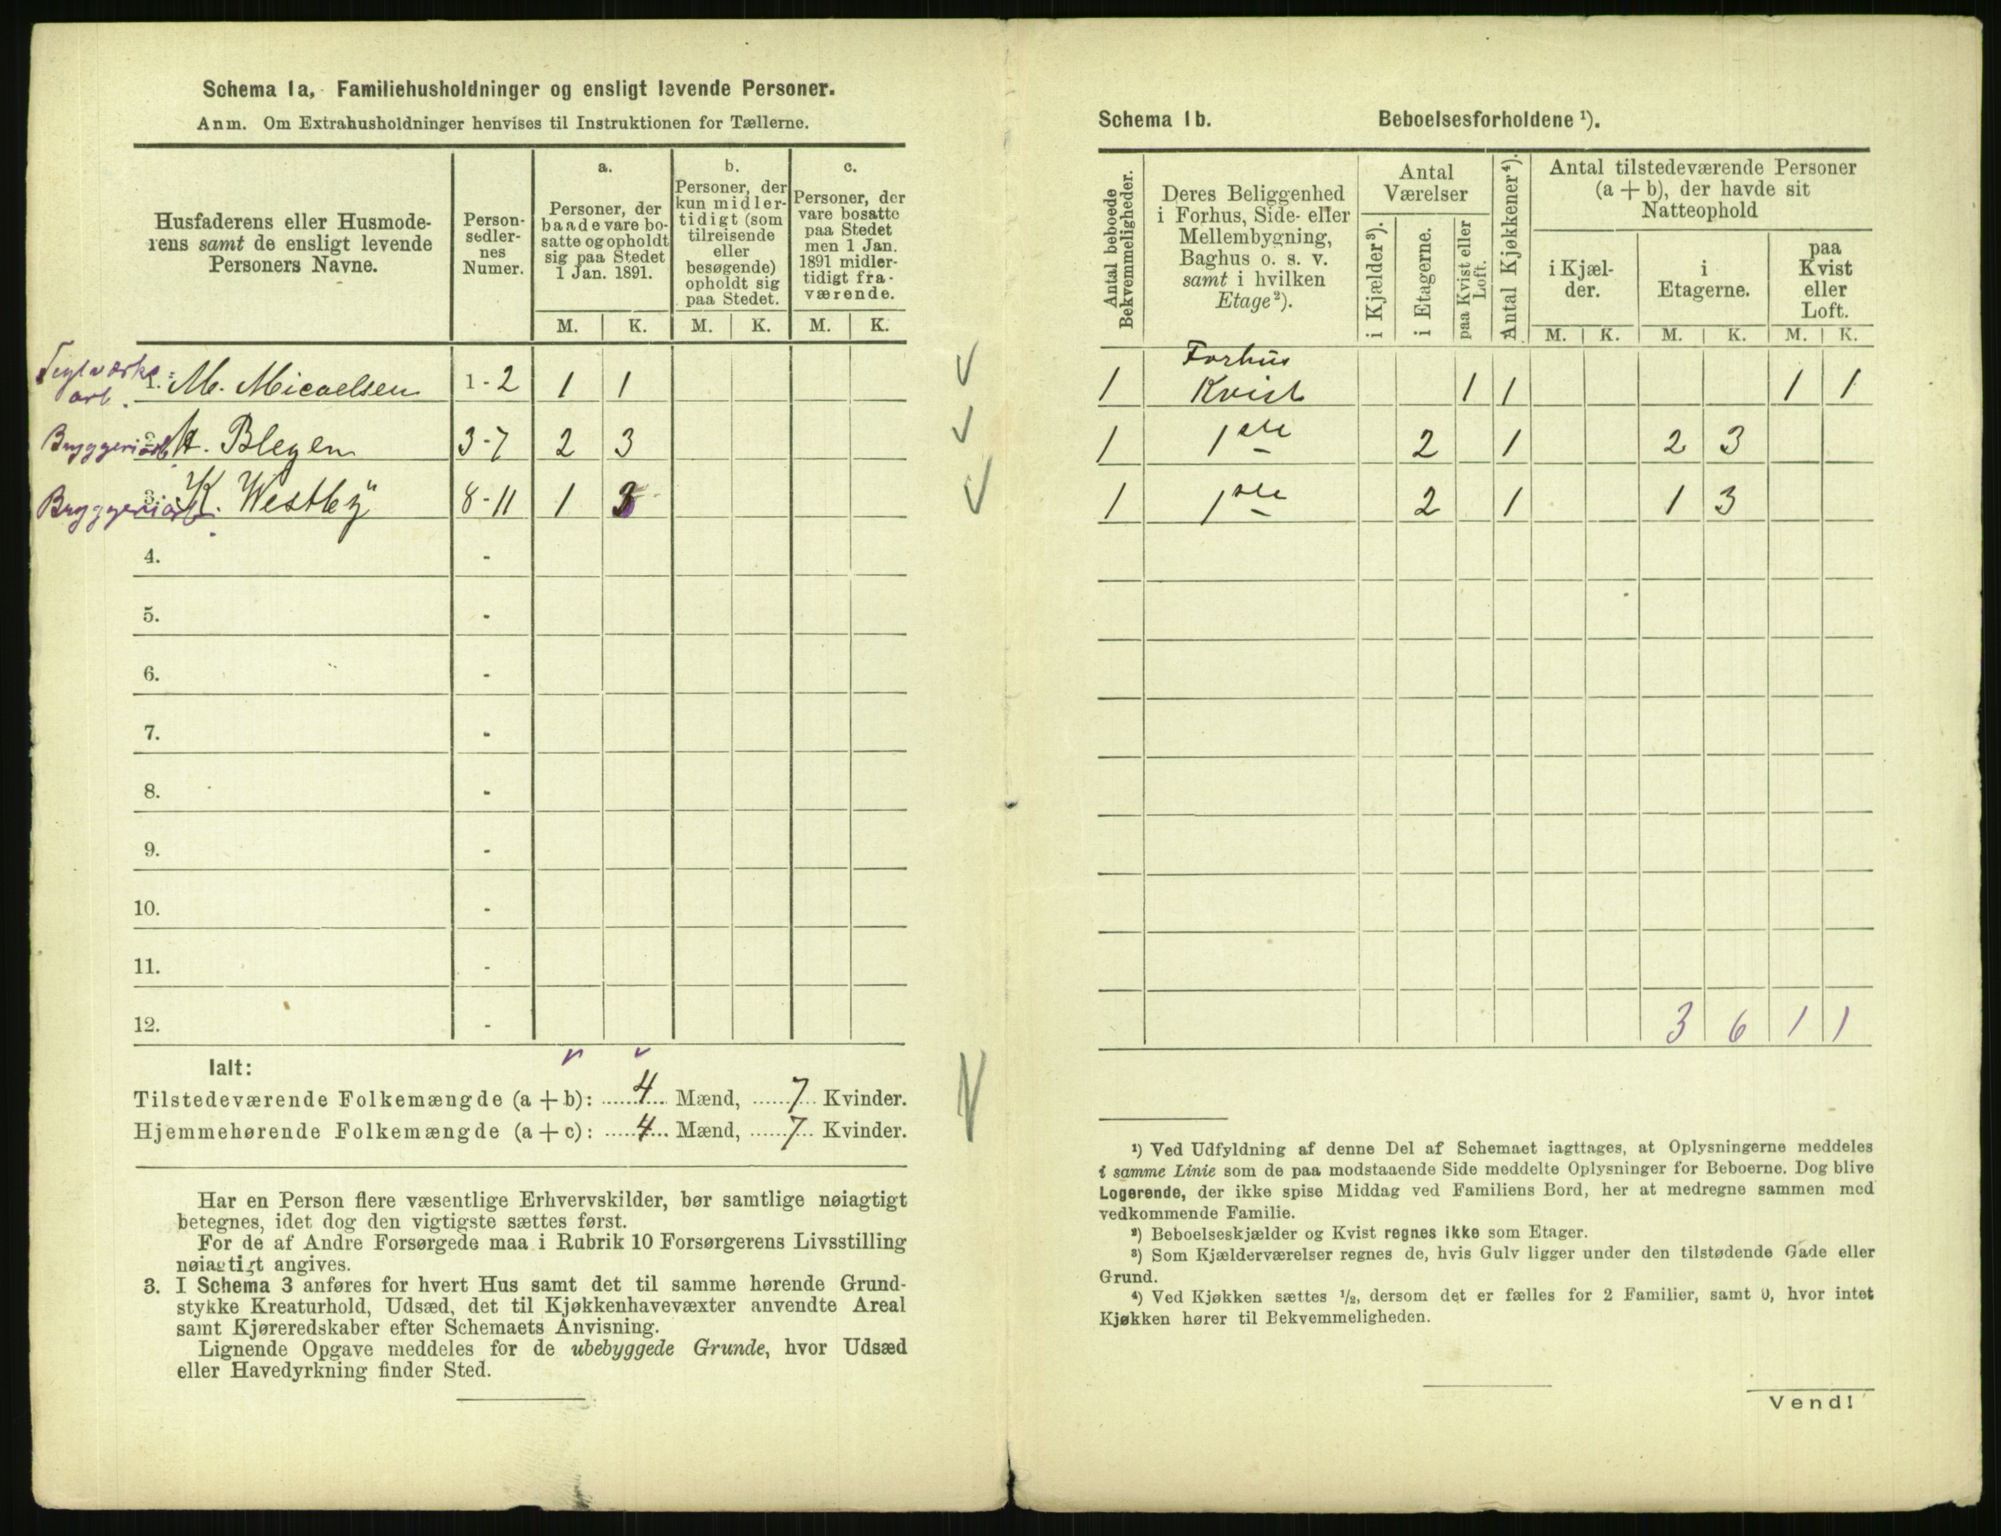 Schema 1a, Familiehusholdninger og ensligt levende Personer.
Anm. Om Extrahusholdninger henvises til Instruktionen for Tællerne.
Husfaderens eller Husmode-
rens samt de ensligt levende
Personers Navne.
Person-
sedler-
nes
Numer.
a.
Personer, der
baade vare bo-
satte og opholdt
sig paa Stedet
1 Jan. 1891.
M. K.
b.
Personer, der
kun midler-
tidigt (som
tilreisende
eller
besøgende)
opholdt sig
paa Stedet.
M. K.
c.
Personer, der
vare bosatte
paa Stedet
men 1 Jan.
1891 midler-
tidigt fra-
værende.
M. K.
Teglværks
arb.
1. M. Micaelsen 1-2 1 1
Bryggeriarb. 2. A. Blegen 3-7 2 3
Bryggeriarb. 3. K. Westby 8-11 1 3
4. -
5. -
6. -
7. -
8. -
9. -
10. -
11. -
12. -
Ialt:
Tilstedeværende Folkemængde (a + b): 4 Mænd, 7 Kvinder.
Hjemmehørende Folkemængde (a + c): 4 Mænd, 7 Kvinder.
Har en Person flere væsentlige Erhvervskilder, bør samtlige nøiagtigt
betegnes, idet dog den vigtigste sættes først.
For de af Andre Forsørgede maa i Rubrik 10 Forsørgerens Livsstilling
nøiagtigt angives.
3. I Schema 3 anføres for hvert Hus samt det til samme hørende Grund-
stykke Kreaturhold, Udsæd, det til Kjøkkenhavevæxter anvendte Areal
samt Kjøreredskaber efter Schemaets Anvisning.
Lignende Opgave meddeles for de ubebyggede Grunde, hvor Udsæd
eller Havedyrkning finder Sted.
Schema 1b. Beboelsesforholdene ¹).
Antal beboede
Bekvemmeligheder.
Deres Beliggenhed
i Forhus, Side- eller
Mellembygning,
Baghus o. s. v.
samt i hvilken
Etage²).
Antal
Værelser
i Kjælder³).
i Etagerne.
paa Kvist eller
Loft.
Antal Kjøkkener⁴).
Antal tilstedeværende Personer
(a + b), der havde sit
Natteophold
i Kjæl-
der.
i
Etagerne.
paa
Kvist
eller
Loft.
M. K. M. K. M. K.
Forhus
1 Kvist 1 1 1 1
1 1ste 2 1 2 3
1 1ste 2 1 1 3
3 6 1 1
¹) Ved Udfyldning af denne Del af Schemaet iagttages, at Oplysningerne meddeles
i samme Linie som de paa modstaaende Side meddelte Oplysninger for Beboerne. Dog blive
Logerende, der ikke spise Middag ved Familiens Bord, her at medregne sammen med
vedkommende Familie.
²) Beboelseskjælder og Kvist regnes ikke som Etager.
³) Som Kjælderværelser regnes de, hvis Gulv ligger under den tilstødende Gade eller
Grund.
⁴) Ved Kjøkken sættes ½, dersom det er fælles for 2 Familier, samt 0, hvor intet
Kjøkken hører til Bekvemmeligheden.
Vend!